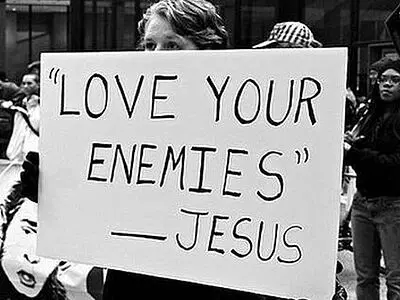 "LOVE YOUR
ENEMIES"
— JESUS